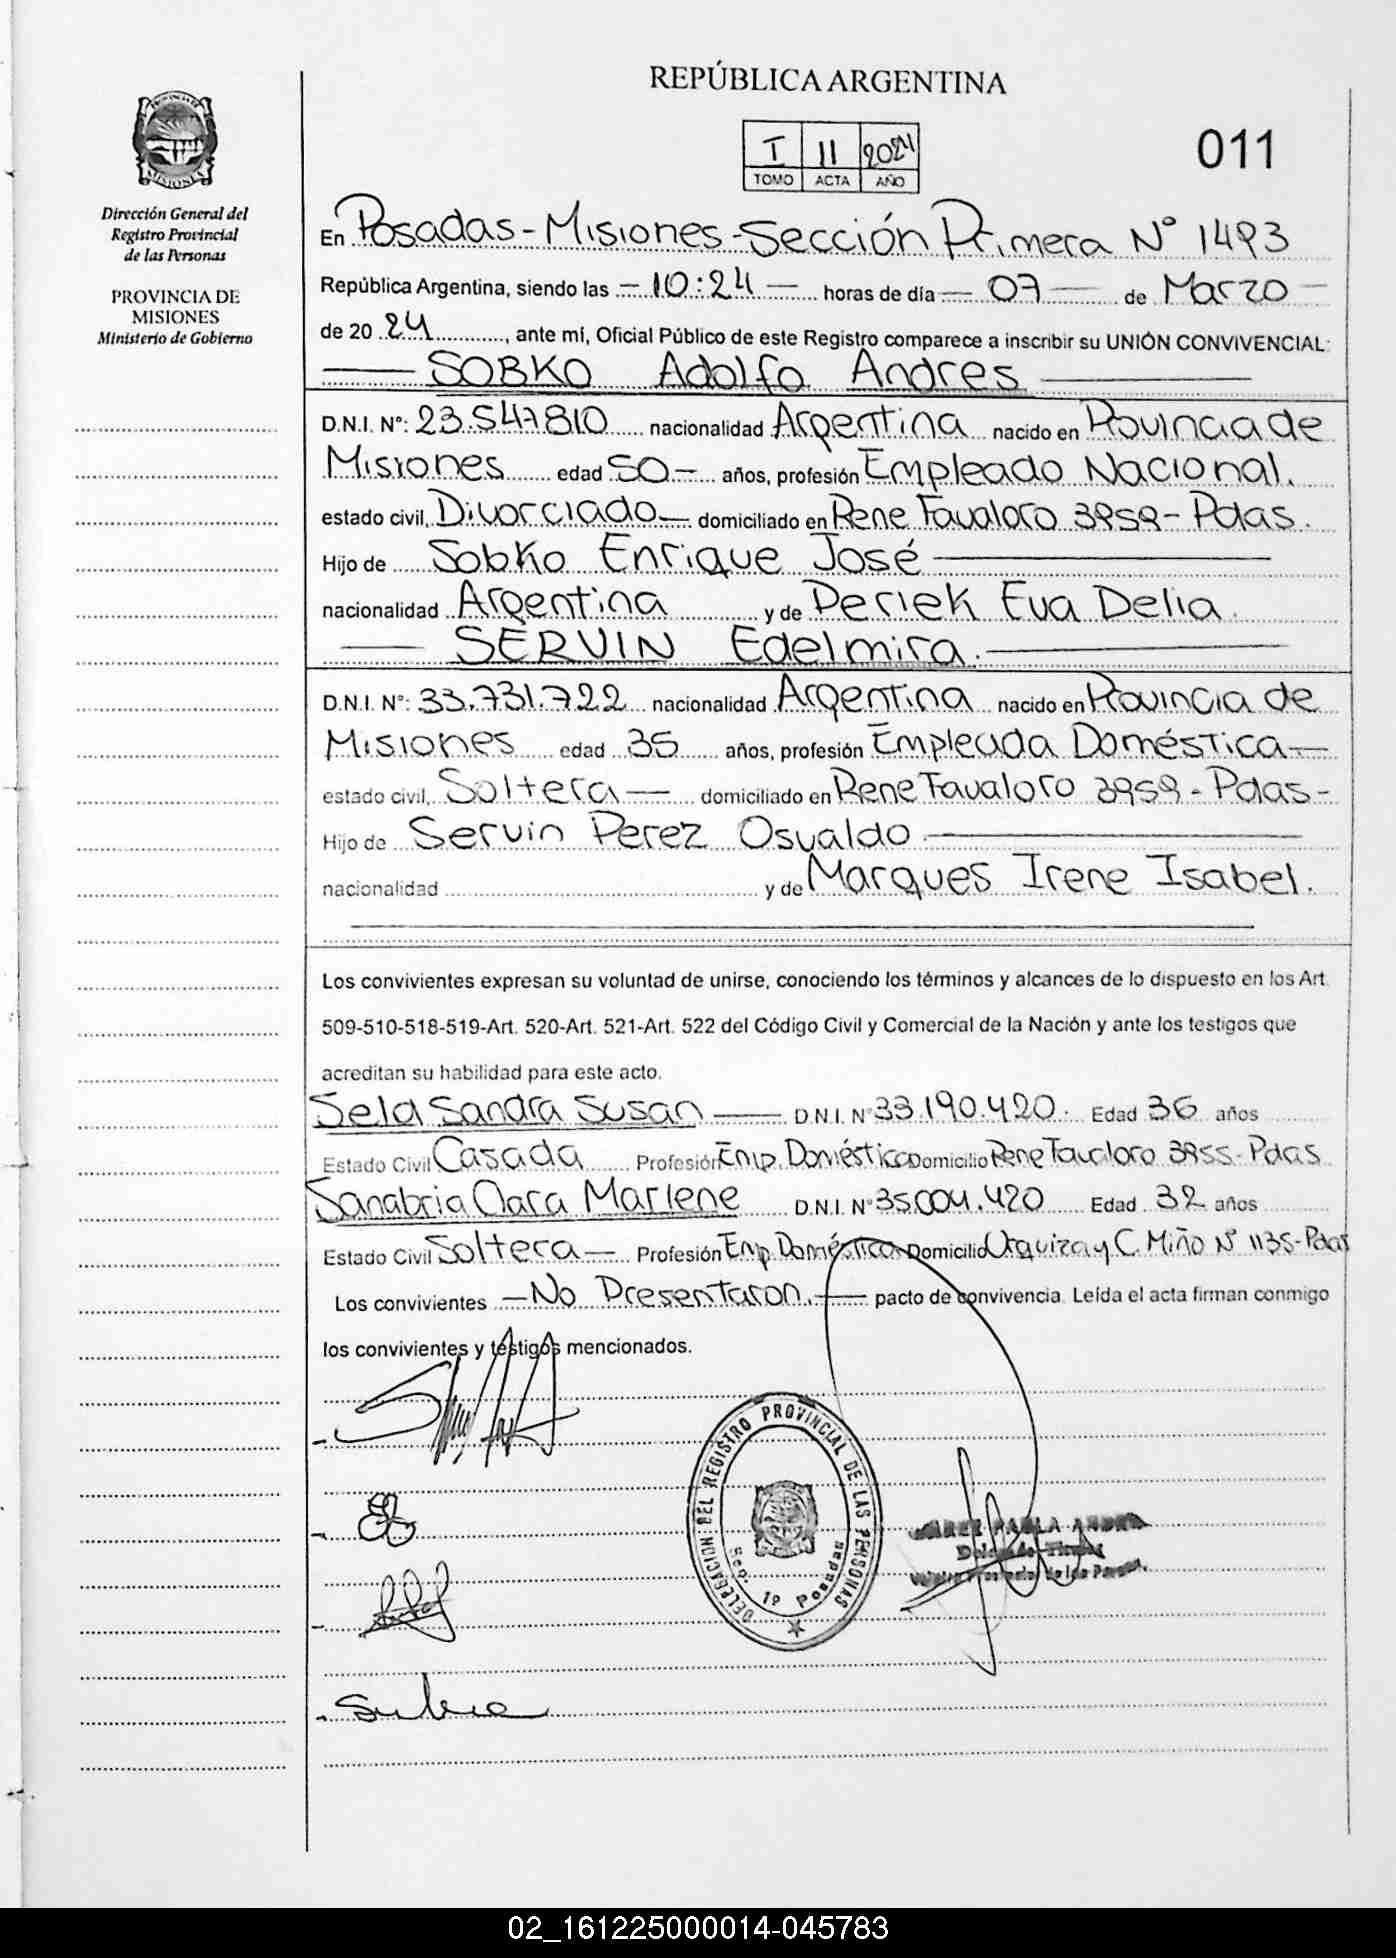 REPÚBLICA ARGENTINA
I 11 2024
TOMO ACTA AÑO
011
Dirección General del
Registro Provincial
de las Personas
PROVINCIA DE
MISIONES
Ministerio de Gobierno
En Posadas - Misiones - Sección Primera N° 1493
República Argentina, siendo las - 10:24 - horas de día - 07 - de Marzo -
de 20 24, ante mí, Oficial Público de este Registro comparece a inscribir su UNIÓN CONVIVENCIAL:
SOBKO Adolfo Andres
D.N.I. N°: 23.547.810 nacionalidad Argentina nacido en Provincia de
Misiones edad 50 - años, profesión Empleado Nacional.
estado civil, Divorciado - domiciliado en Rene Favaloro 3959 - Pdas.
Hijo de Sobko Enrique José
nacionalidad Argentina y de Periek Eva Delia.
SERVIN Edelmira.
D.N.I. N°: 33.731.722 nacionalidad Argentina nacido en Provincia de
Misiones edad 35 años, profesión Empleada Doméstica -
estado civil, Soltera - domiciliado en Rene Favaloro 3959 - Pdas -
Hijo de Servin Perez Osvaldo
nacionalidad y de Marques Irene Isabel.
Los convivientes expresan su voluntad de unirse, conociendo los términos y alcances de lo dispuesto en los Art.
509-510-518-519-Art. 520-Art. 521-Art. 522 del Código Civil y Comercial de la Nación y ante los testigos que
acreditan su habilidad para este acto.
Sela Sandra Susan D.N.I. N° 33.190.420. Edad 36 años
Estado Civil Casada Profesión Emp. Doméstica Domicilio Rene Favaloro 3955 - Pdas
Sanabria Clara Marlene D.N.I. N° 35.004.420 Edad 32 años
Estado Civil Soltera - Profesión Emp. Doméstica Domicilio Urquiza y C. Miño N° 1135 - Pdas
Los convivientes - No Presentaron. - pacto de convivencia. Leída el acta firman conmigo
los convivientes y testigos mencionados.
DELEGACION DEL REGISTRO PROVINCIAL DE LAS PERSONAS
Sec. 1º Posadas
02_161225000014-045783